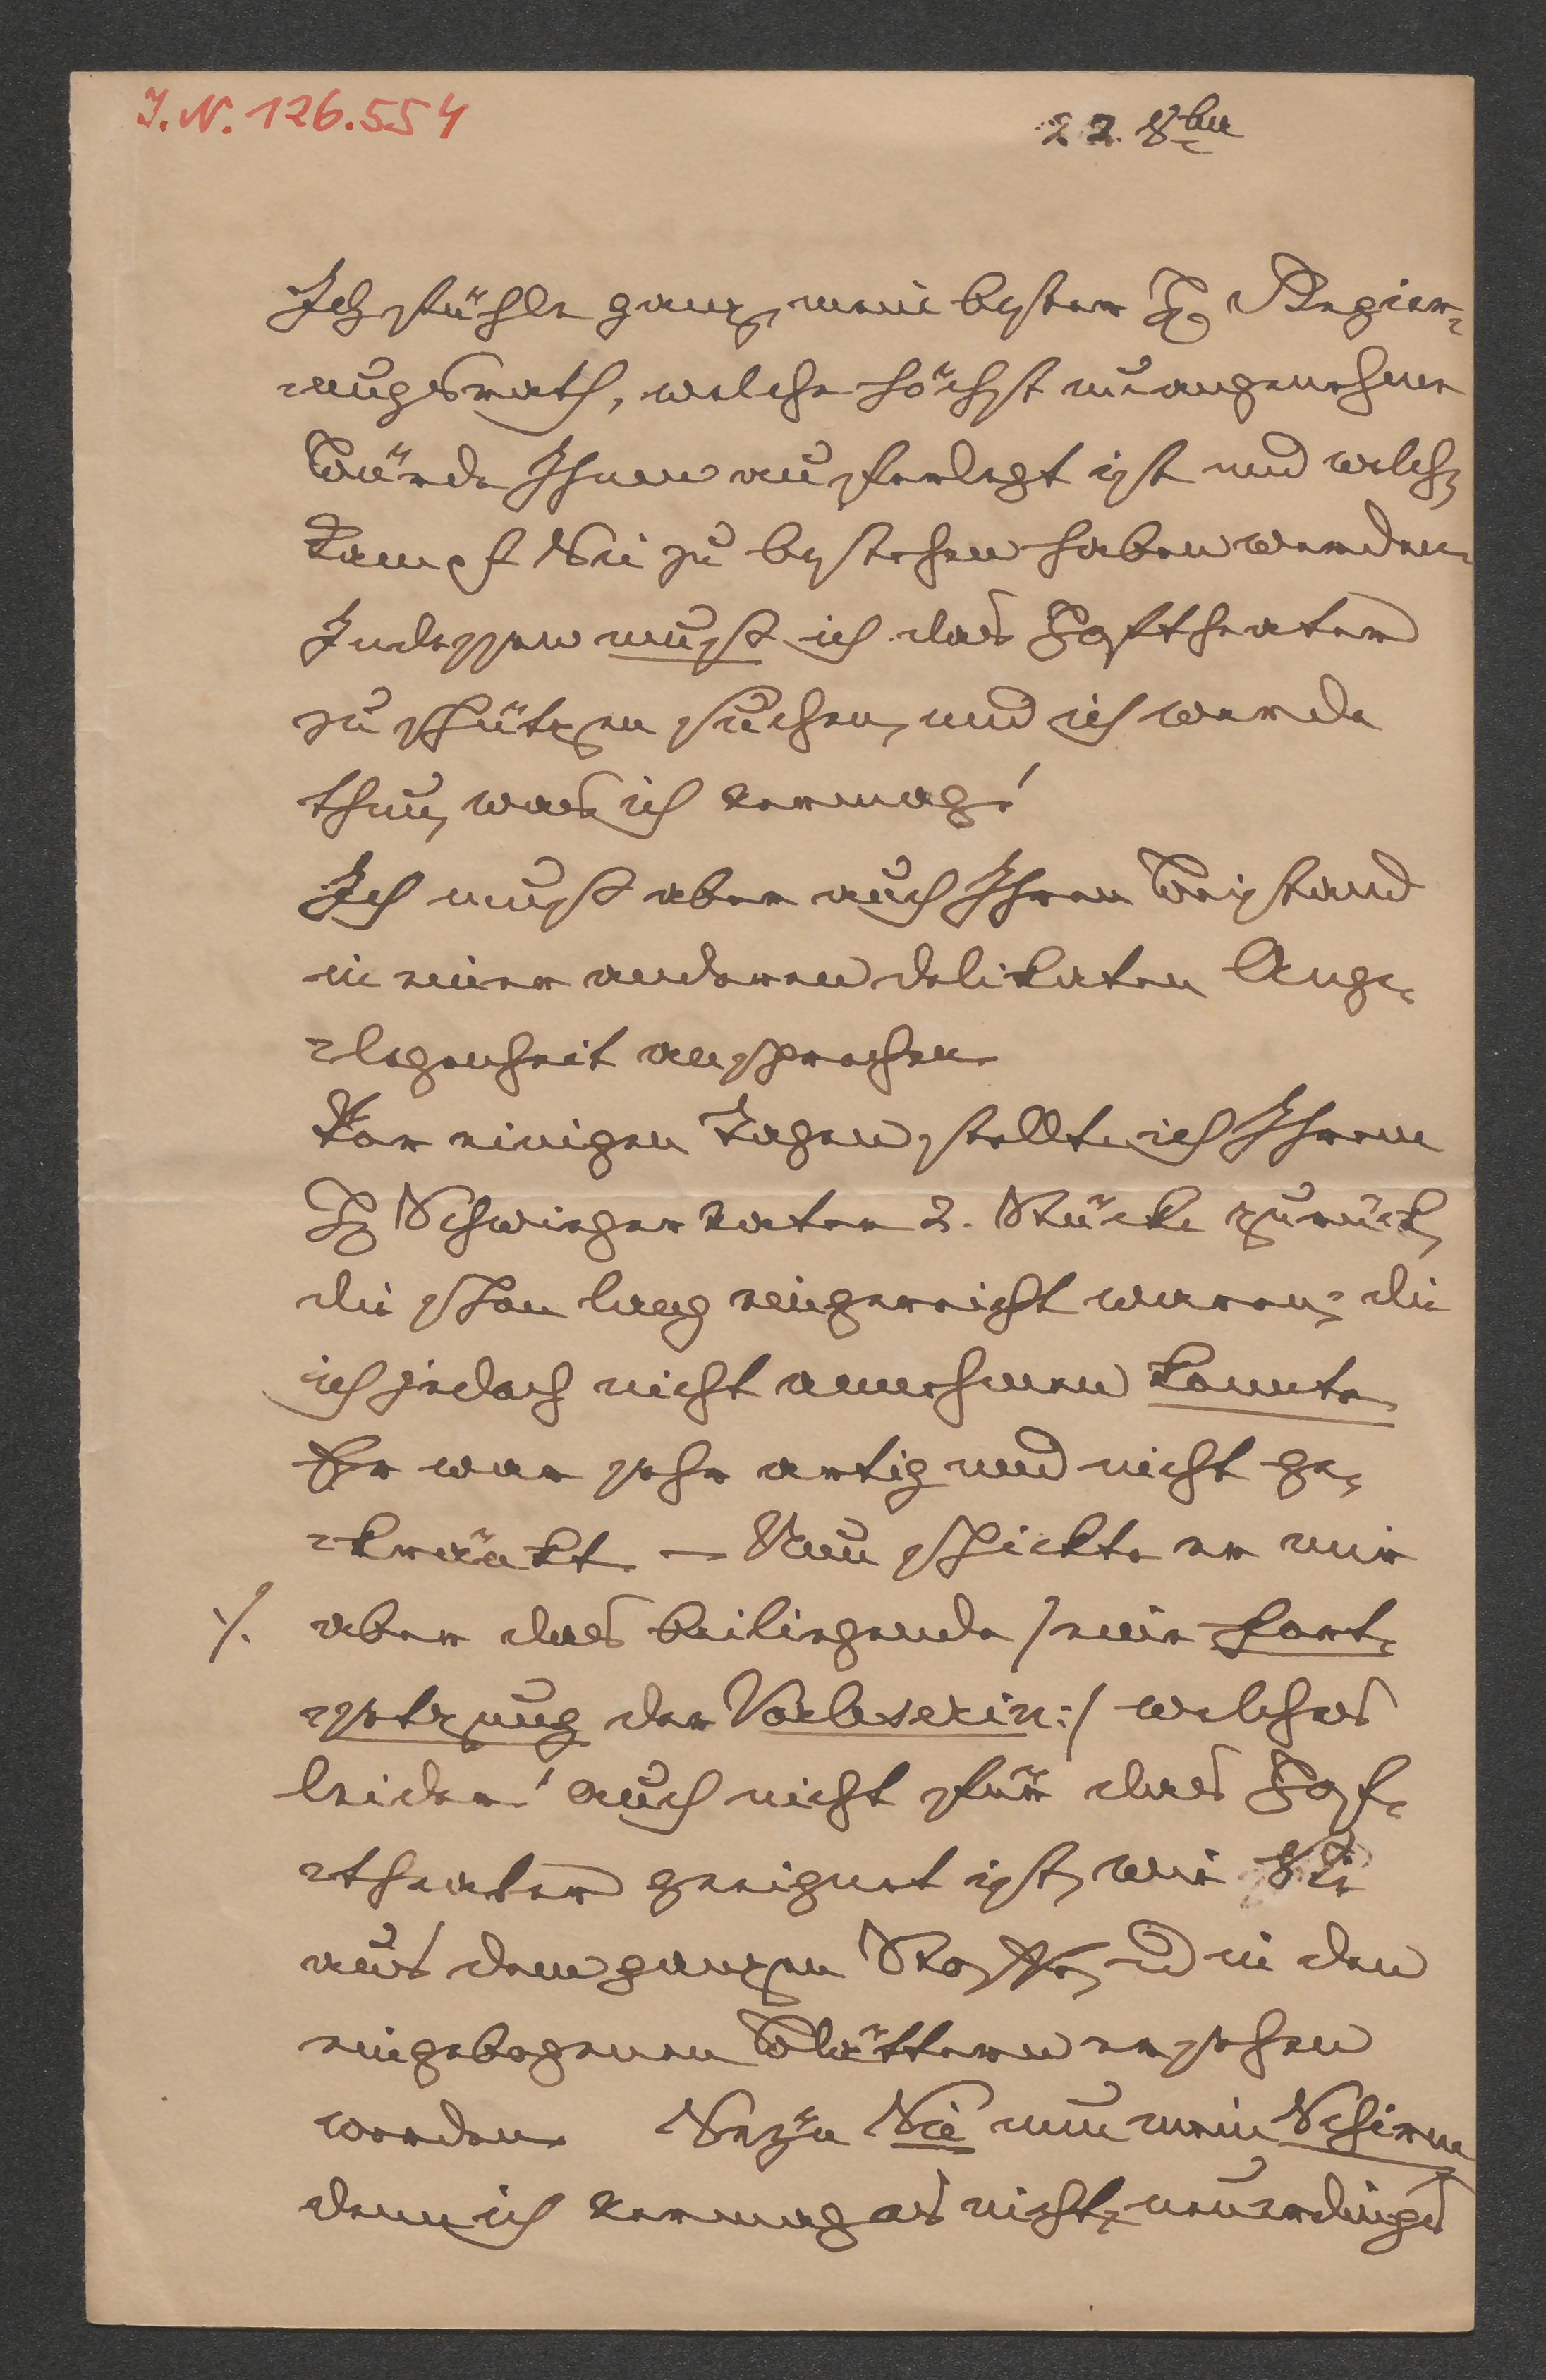 I.N. 126.554
22. 8ber
Ich fühle ganz, mein bester H Regier-
ungsrath, welche höchst unangenehme
Bürde Ihnen auferlegt ist und welch
Kampf Sie zu bestehen haben werden.
Indessen muß ich das Hoftheater
zu schützen suchen, und ich werde
thun, was ich vermag!
Ich muß aber auch Ihren Beistand
in einer anderen delikaten Ange-
legenheit ansprechen.
Vor einigen Tagen stellte ich Ihrem
H Schwiegervater 2. Stücke zurück,
die schon lang eingereicht waren, die
ich jedoch nicht annehmen konnte.
Er war sehr artig und nicht ge-
kränkt. – Nun schickte er mir
./. aber das beiliegende / eine Fort-
setzung der Vorleserin :/ welches
leider! auch nicht für das Hof-
theater geeignet ist, wie Sie
aus dem ganzen Stoffe, u in den
eingebogenen Blättern ersehen
werden. Seyn Sie nun mein Schirm
denn ich vermag es nicht, neuerdings